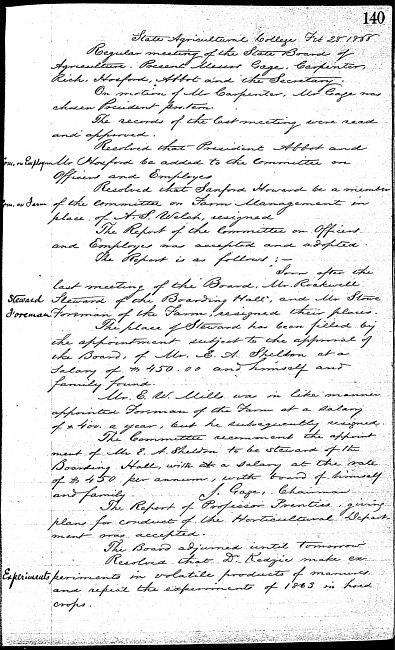 140
State Agricultural College Feb 28 1866
Regular meeting of the State Board of
Agriculture. Present Messrs Gage, Carpenter,
Rich, Hosford, Abbot and the Secretary.
On motion of Mr Carpenter, Mr Gage was
chosen President pro tem.
The records of the last meeting were read
and approved.
Resolved that President Abbot and
Com. on Employes Mr Hosford be added to the Committee on
Officers and Employes
Resolved that Sanford Howard be a member
Com. on Farm of the Committee on Farm Management in
place of A. S. Welch, resigned
The Report of the Committee on Officers
and Employes was accepted and adopted.
The Report is as follows :—
Soon after the
last meeting of the Board, Mr. Rockwell
Steward Steward of the Boarding Hall, and Mr Stowe
Foreman Foreman of the Farm, resigned their places.
The place of Steward has been filled by
the appointment subject to the approval of
the Board, of Mr. E. A. Sheldon at a
salary of $450.00 and himself and
family found.
Mr. E. W. Mills was in like manner
appointed Forman of the Farm at a salary
of $400. a year, but he subsequently resigned.
The Committee recommend the appoint
ment of Mr E. A. Sheldon to be steward of the
Boarding Hall, with a salary at the rate
of $450 per annum, with board of himself
and family J. Gage, Chairman
The Report of Professor Prentiss, giving
plans for conduct of the Horticultural Depart
ment was accepted.
The Board adjourned until tomorrow
Resolved that Dr. Kedzie make ex
Experiments periments in volatile products of manures
and repeat the experiments of 1863 in hoed
crops.